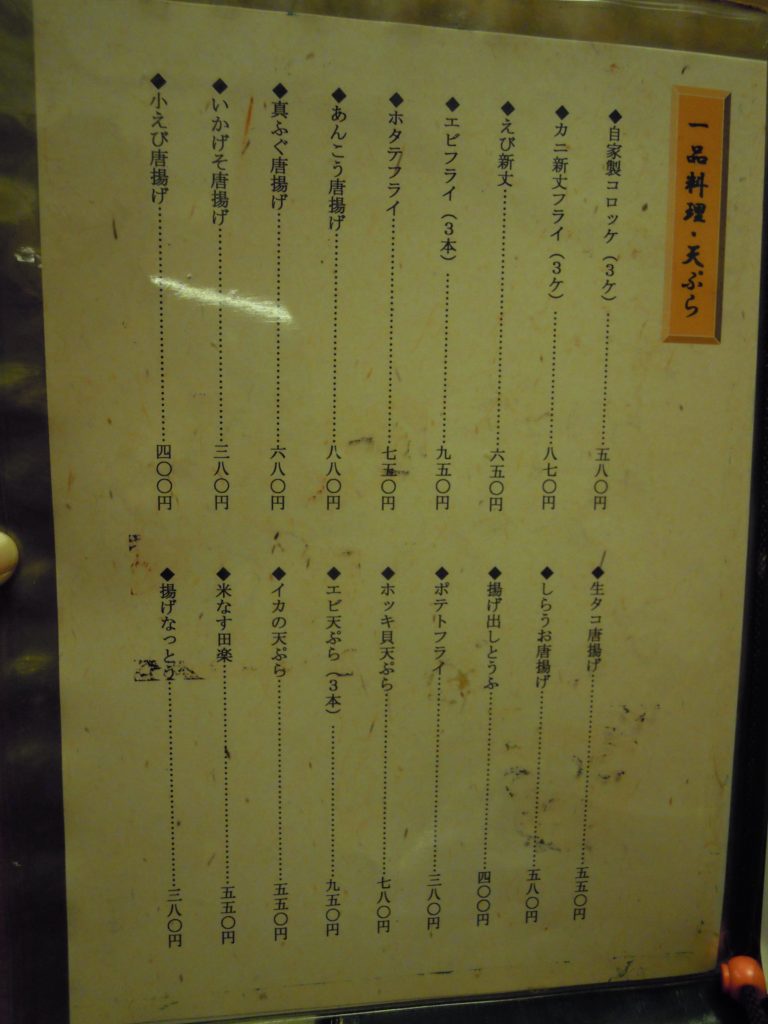 一品料理・天ぷら
◆自家製コロッケ（３ケ）……五八〇円
◆カニ新丈フライ（３ケ）……八七〇円
◆えび新丈……六五〇円
◆エビフライ（３本）……九五〇円
◆ホタテフライ……七五〇円
◆あんこう唐揚げ……八八〇円
◆真ふぐ唐揚げ……六八〇円
◆いかげそ唐揚げ……三八〇円
◆小えび唐揚げ……四〇〇円
◆生タコ唐揚げ……五五〇円
◆しらうお唐揚げ……五八〇円
◆揚げ出しとうふ……四〇〇円
◆ポテトフライ……三八〇円
◆ホッキ貝天ぷら……七八〇円
◆エビ天ぷら（３本）……九五〇円
◆イカの天ぷら……五五〇円
◆米なす田楽……五五〇円
◆揚げなっとう……三八〇円